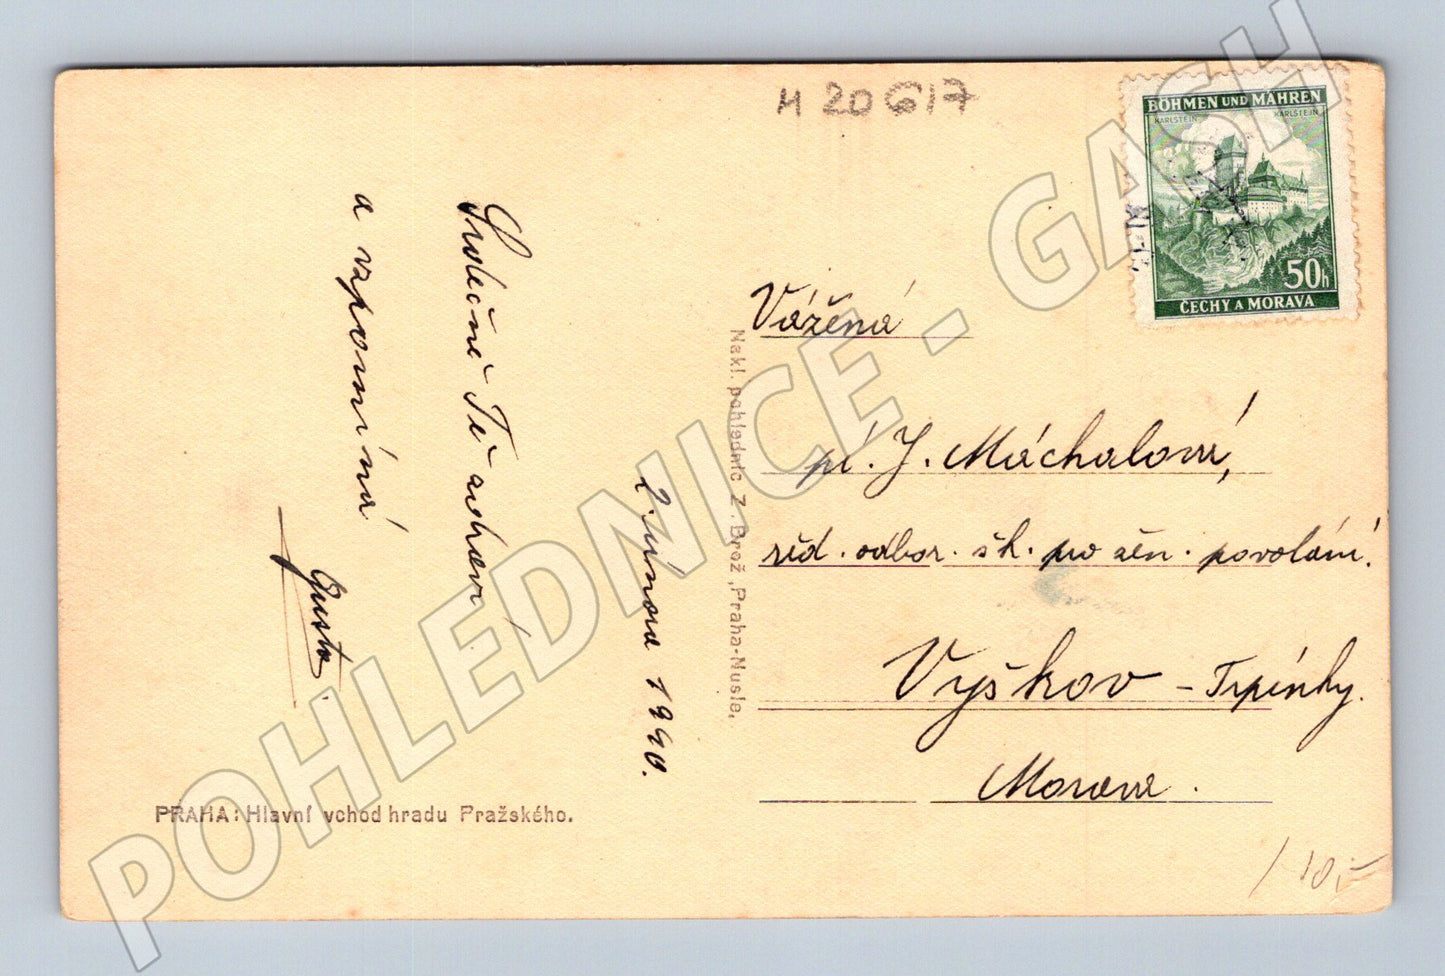 M 20617
BÖHMEN UND MÄHREN
KARLSTEIN KARLSTEIN
50h
ČECHY A MORAVA
Srdečně Tě zdraví
a vzpomíná
Gusta
2. února 1940.
Nakl. pohlednic Z. Brož, Praha-Nusle,
PRAHA: Hlavní vchod hradu Pražského.
Vážená
pí. J. Máchalová,
řed. odbor. šk. pro žen. povolání.
Vyškov - Trpínky.
Morava.
/ 10,-
POHLEDNICE - GASH